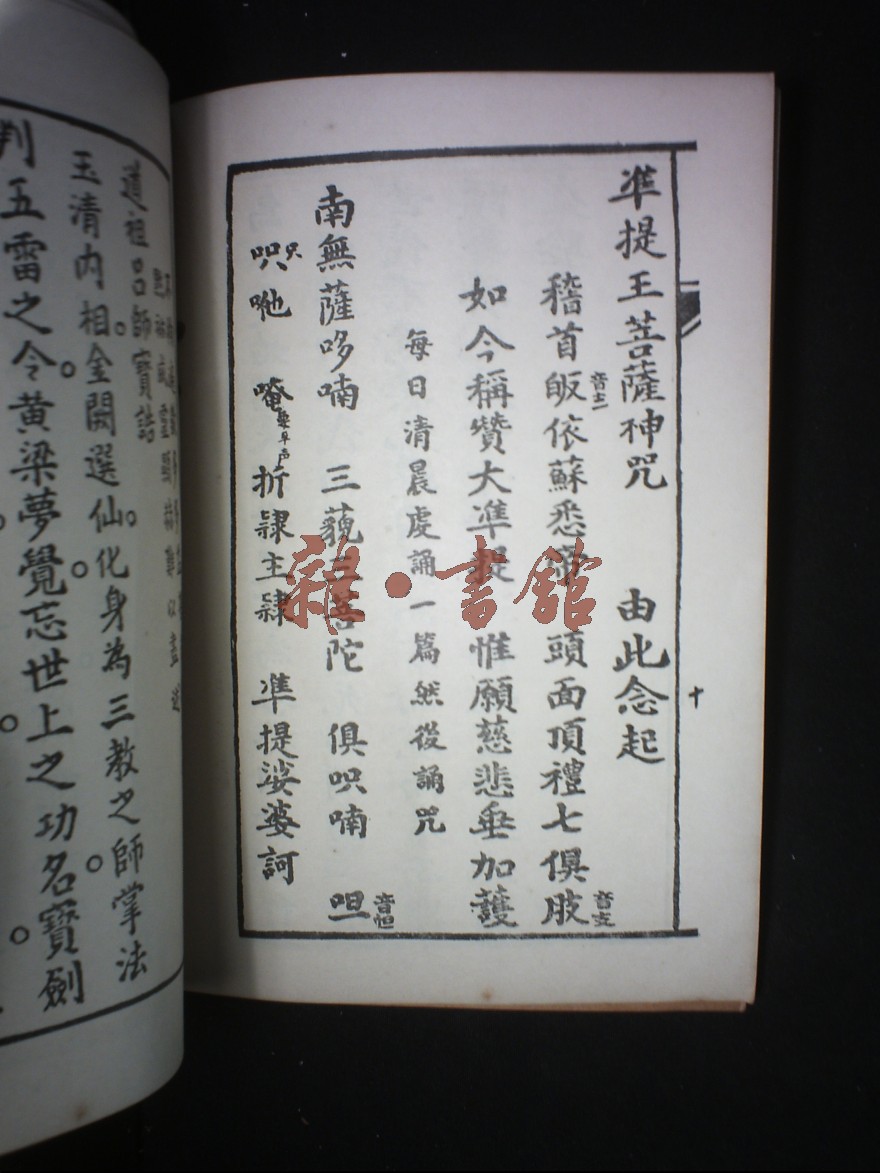 準提王菩薩神咒 由此念起
稽首皈依蘇悉帝 頭面頂禮七俱胝
音支
如今稱贊大準提 惟願慈悲垂加護
每日清晨虔誦一篇然後誦咒
南無薩哆喃 三藐三菩陀 俱呮喃 呾
音怛
呮哋 唵 折隸主隸 準提娑婆訶
十
道祖呂師寶誥
玉清內相金闕選仙化身為三教之師掌法
判五雷之令黃梁夢覺忘世上之功名寶劍
雜·書館